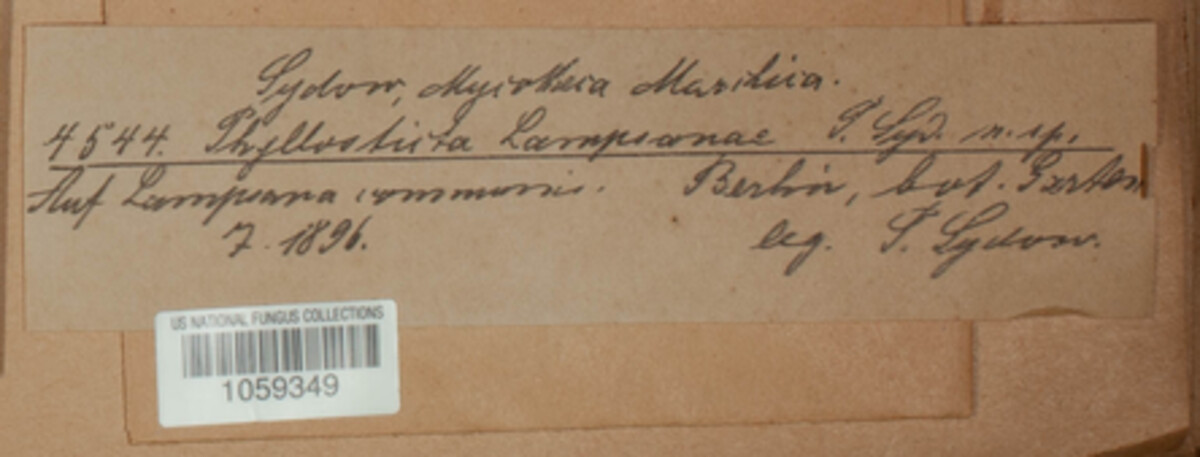 Sydow, Mycotheca Marchica.
4544. Phyllosticta Lampsanae P. Syd. n. sp.
Auf Lampsana communis. Berlin, bot. Garten
7. 1896. leg. P. Sydow.
US NATIONAL FUNGUS COLLECTIONS
1059349